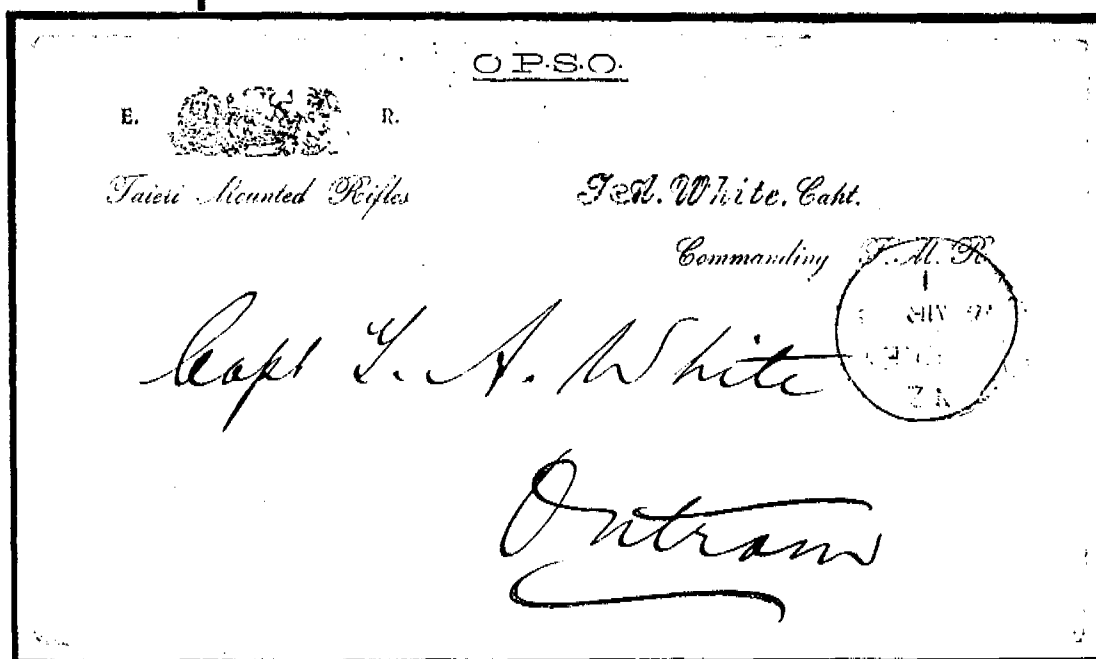 O.P.S.O.
E. R.
Taieri Mounted Rifles
White. Capt.
Commanding T. M. R.
Capt T. A. White
Outram